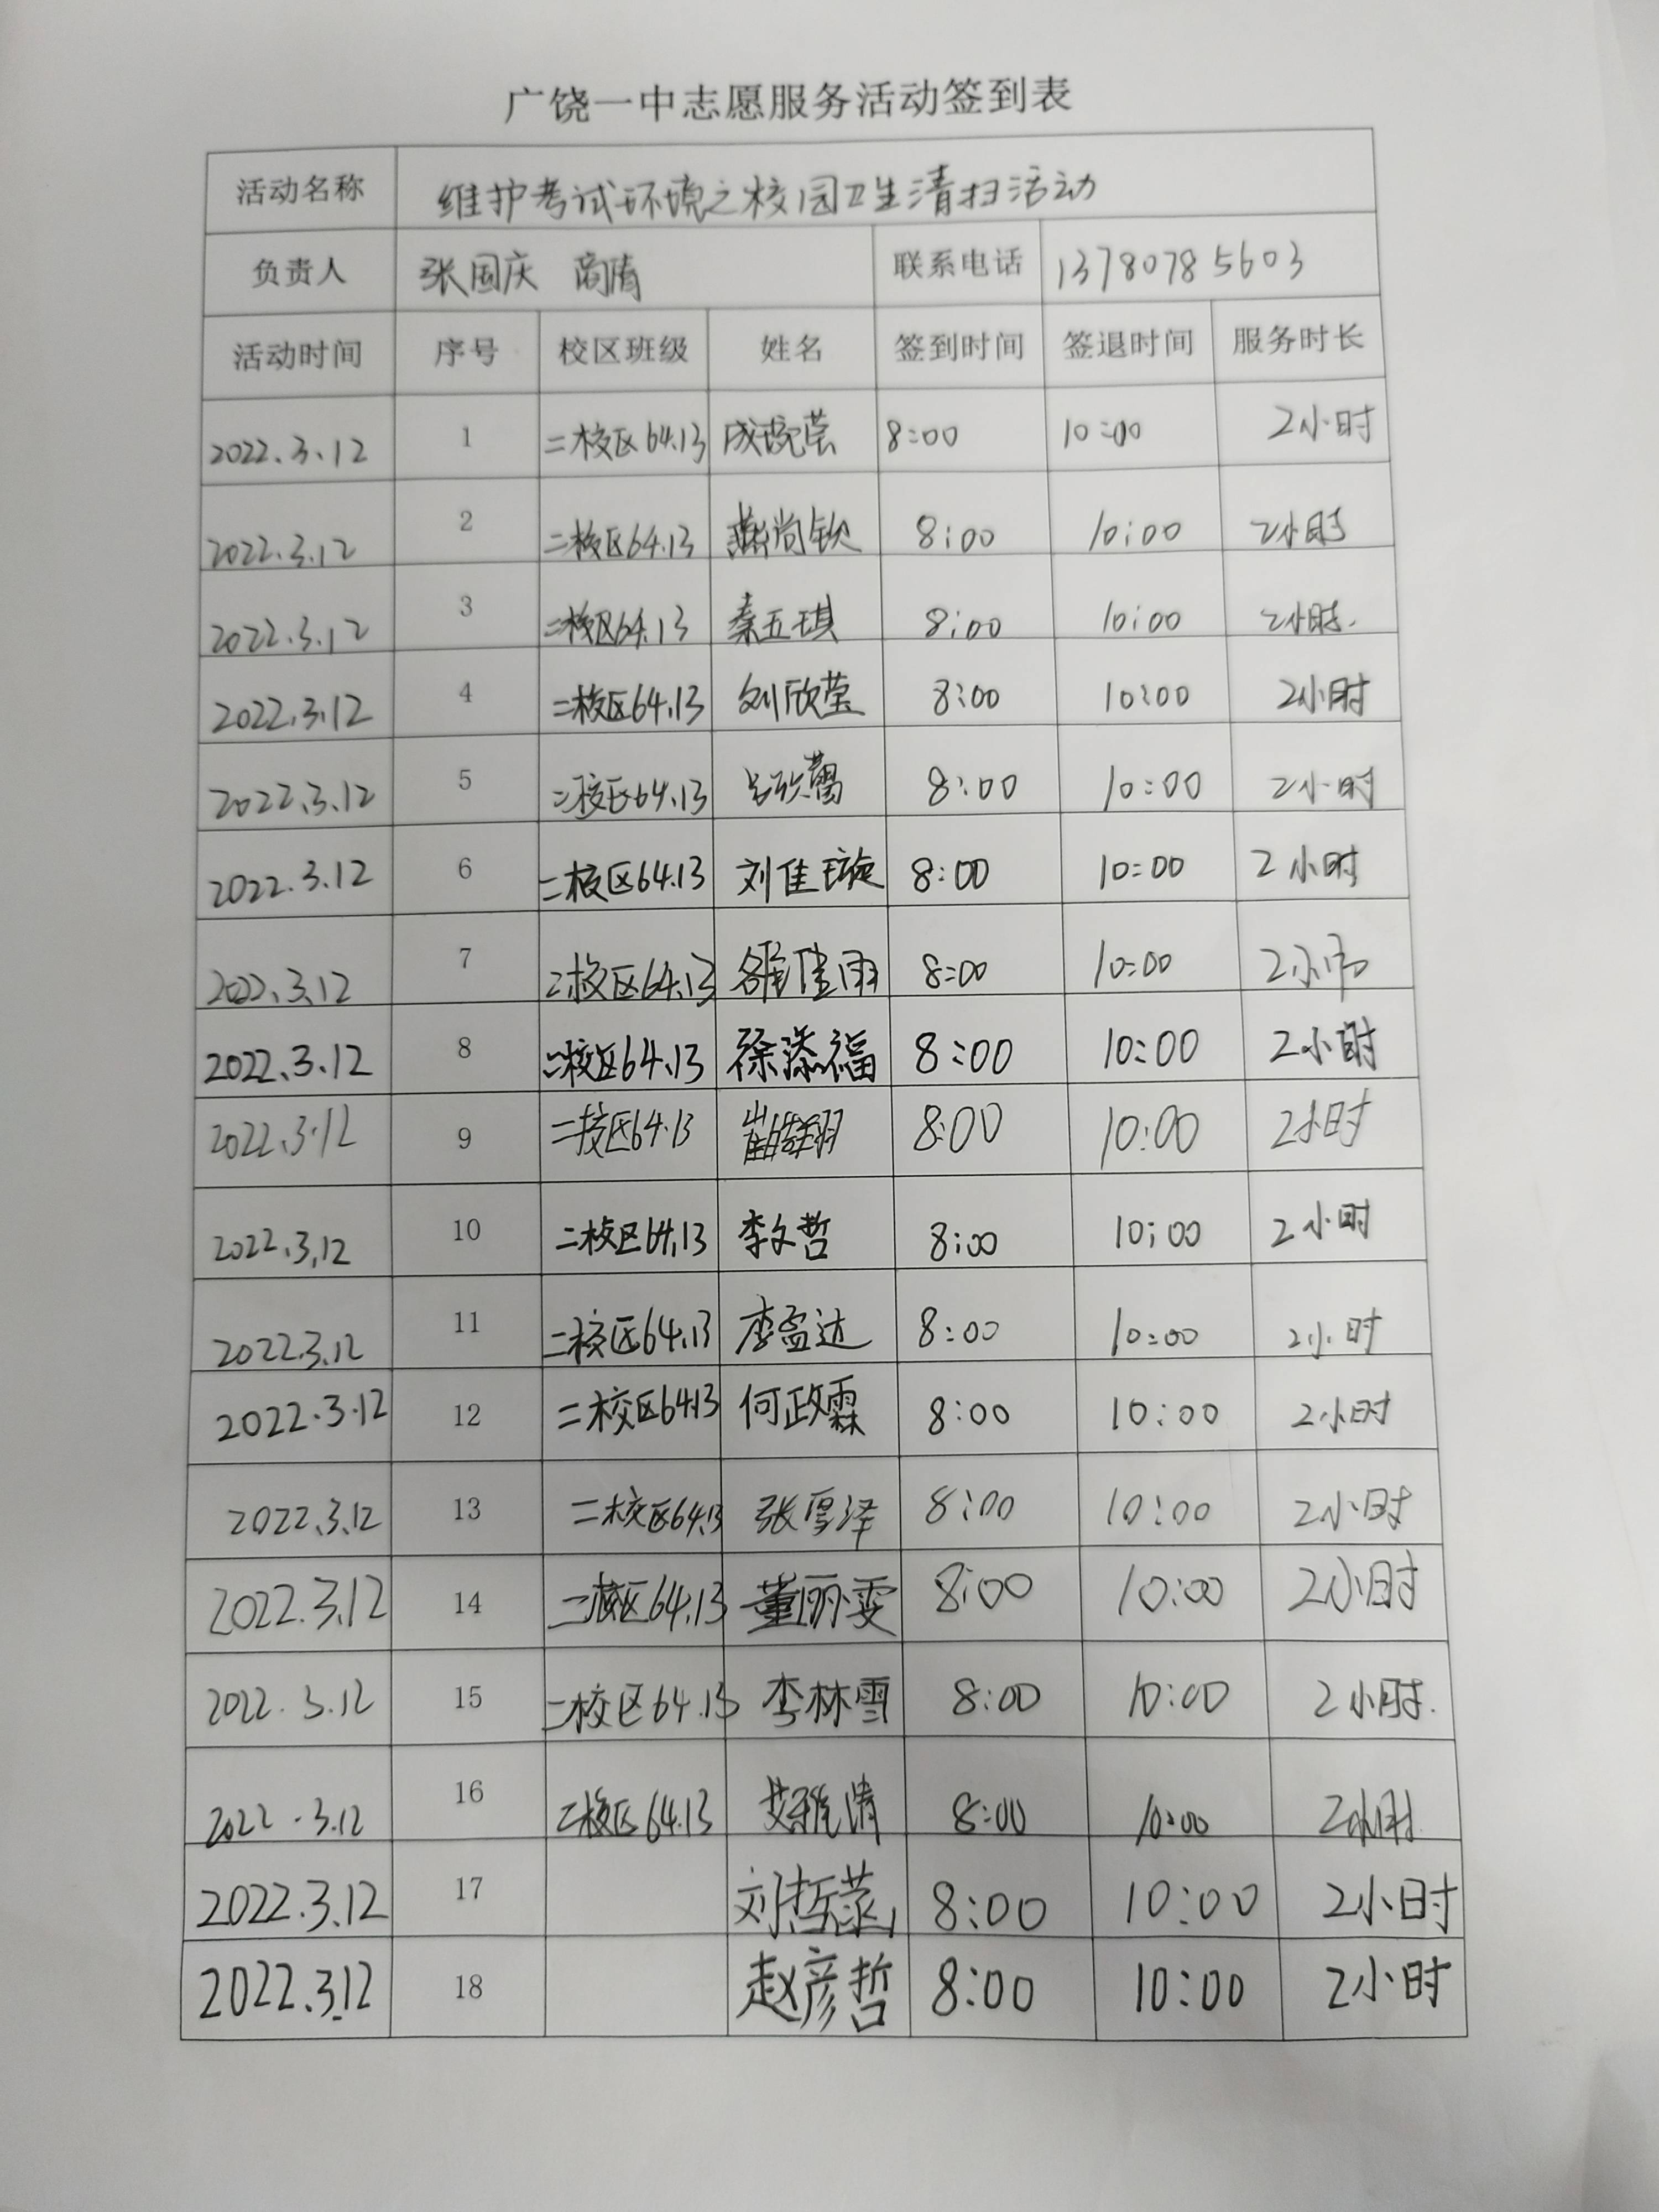 广饶一中志愿服务活动签到表
活动名称 维护考试环境之校园卫生清扫活动
负责人 张国庆 联系电话 13780785603
活动时间 序号 校区班级 姓名 签到时间 签退时间 服务时长
2022.3.12 1 二校区64.13 8:00 10:00 2小时
2022.3.12 2 二校区64.13 8:00 10:00 2小时
2022.3.12 3 二校区64.13 秦五琪 8:00 10:00 2小时.
2022.3.12 4 二校区64.13 刘欣莹 8:00 10:00 2小时
2022.3.12 5 二校区64.13 8:00 10:00 2小时
2022.3.12 6 二校区64.13 刘佳璇 8:00 10:00 2小时
2022.3.12 7 二校区64.13 8:00 10:00 2小时
2022.3.12 8 二校区64.13 徐添福 8:00 10:00 2小时
2022.3.12 9 二校区64.13 8:00 10:00 2小时
2022.3.12 10 二校区64.13 李文哲 8:00 10:00 2小时
2022.3.12 11 二校区64.13 李孟达 8:00 10:00 2小时
2022.3.12 12 二校区64.13 何政霖 8:00 10:00 2小时
2022.3.12 13 二校区64.13 张厚泽 8:00 10:00 2小时
2022.3.12 14 二校区64.13 董丽雯 8:00 10:00 2小时
2022.3.12 15 二校区64.13 李林雪 8:00 10:00 2小时.
2022.3.12 16 二校区64.13 8:00 10:00 2小时
2022.3.12 17 8:00 10:00 2小时
2022.3.12 18 赵彦哲 8:00 10:00 2小时